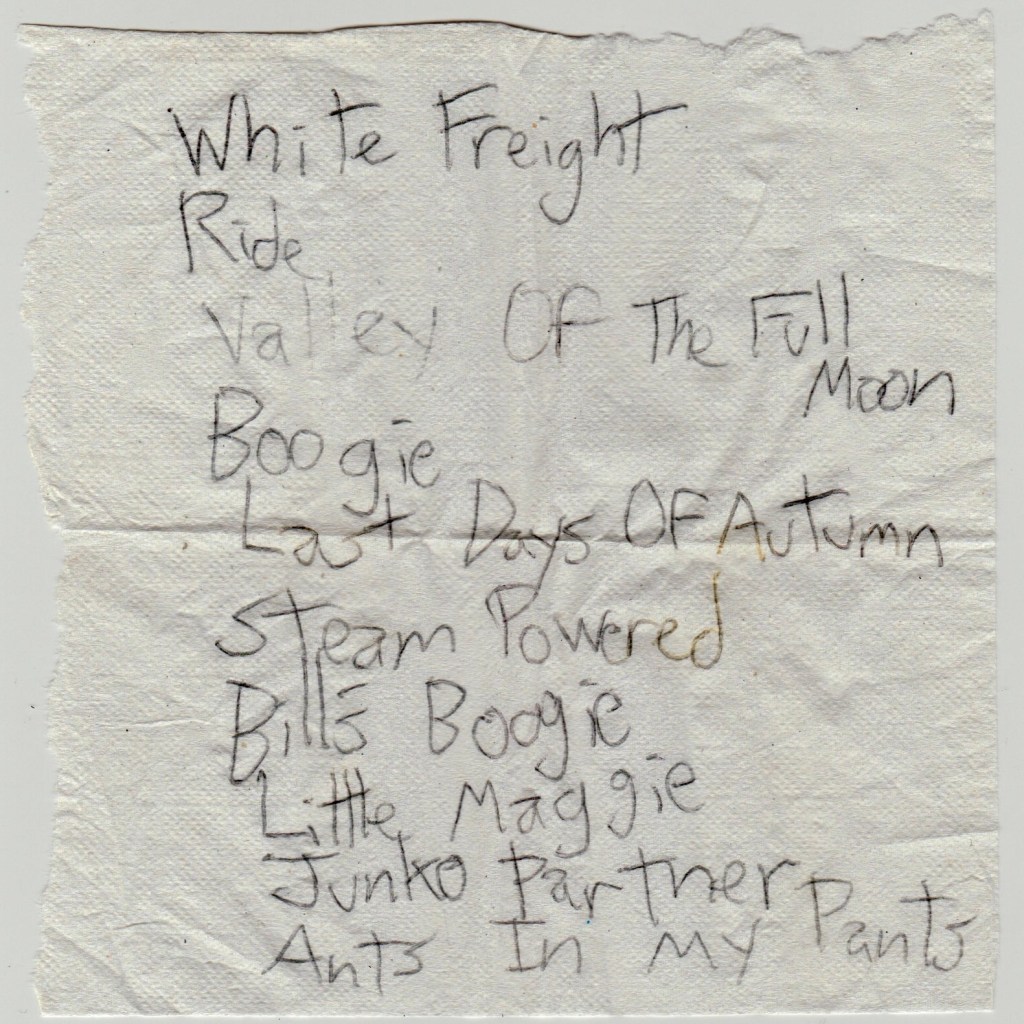 White Freight
Ride
Valley Of The Full
Moon
Boogie
Last Days Of Autumn
Steam Powered
Bills Boogie
Little Maggie
Junko Partner
Ants In My Pants